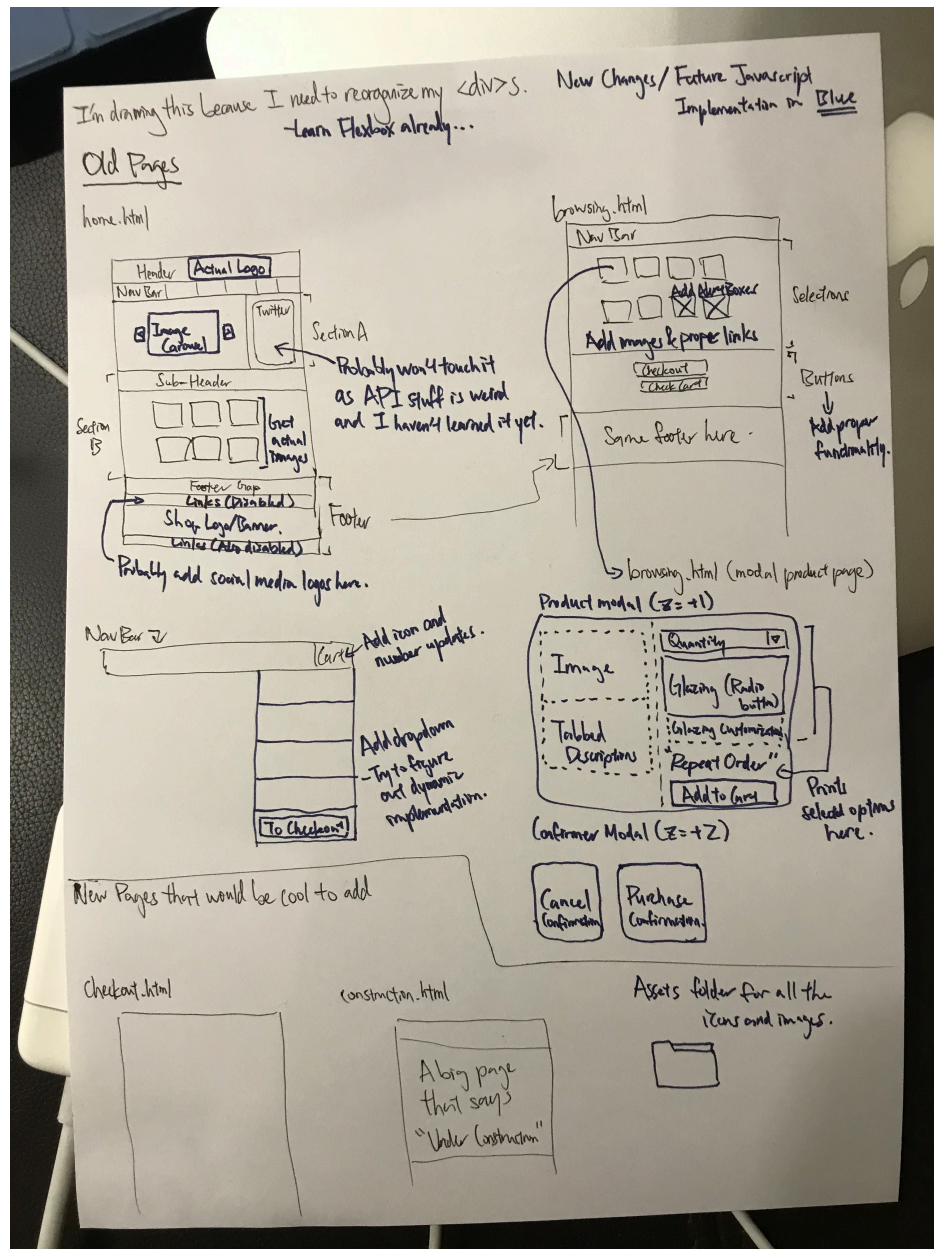 I'm drawing this because I need to reorganize my <div>s.
-Learn Flexbox already...
New Changes/Future Javascript
Implementation in Blue
Old Pages
home.html
Header
Actual Logo
Nav Bar
Image
Carousel
Twitter
Section A
Probably won't touch it
as API stuff is weird
and I haven't learned it yet.
Sub-Header
Section
B
Get
actual
images
Footer Gap
Links (Disabled)
Shop Logo/Banner.
Links (Also disabled)
Footer
Probably add social media logos here.
browsing.html
Nav Bar
Add Boxes
Add images & proper links
Selections
Checkout
Check Cart
Buttons
Add proper
functionality.
Same footer here.
browsing.html (modal product page)
Product modal (z=+1)
Image
Tabbed
Descriptions
Quantity
Glazing (Radio
button)
Glazing Customization
"Repeat Order"
Add to Cart
Prints
selected options
here.
Confirmer Modal (z=+2)
Cancel
Confirmation
Purchase
Confirmation.
Nav Bar
Cart
Add icon and
number updates.
Add dropdown
-Try to figure
out dynamic
implementation.
To Checkout
New Pages that would be cool to add
Checkout.html
construction.html
A big page
that says
"Under Construction"
Assets folder for all the
icons and images.